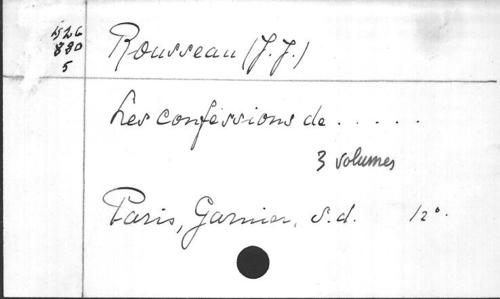 526
830
5
Rousseau (J. J.)
Les confessions de . . . . .
3 volumes
Paris, Garnier, s.d. 12°.